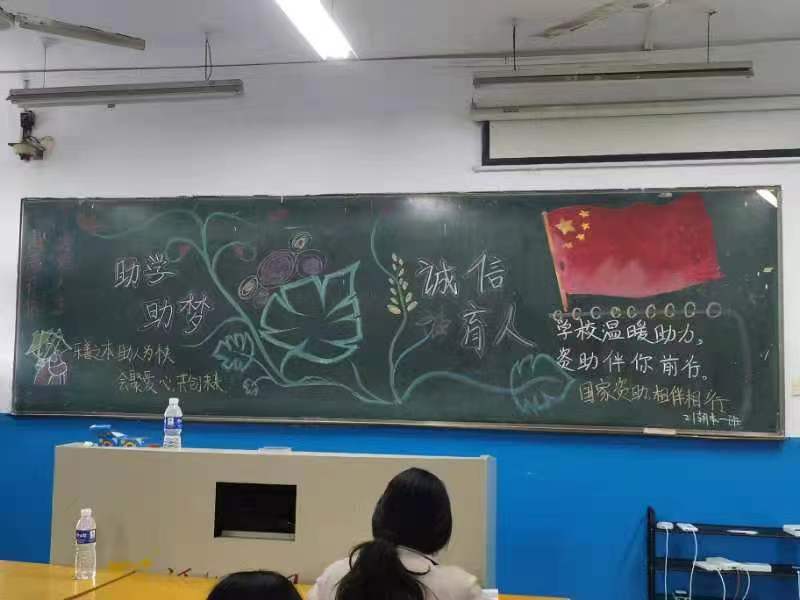 助学
助梦
诚信
育人
学校温暖助力，
资助伴你前行。
国家资助 相伴相行
助人为快
会聚爱心 共创未来